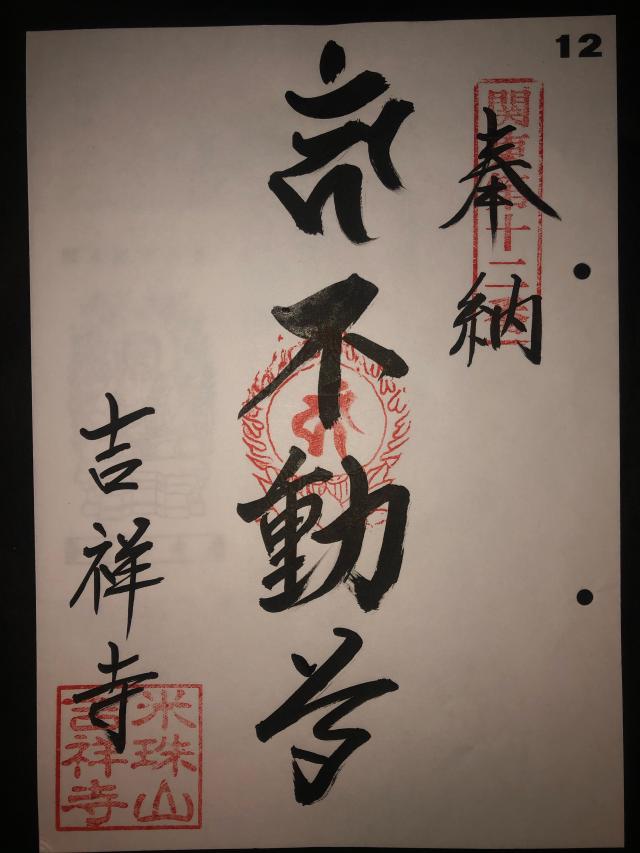 12
奉納
関東第十二番
不動尊
吉祥寺
米珠山
吉祥寺